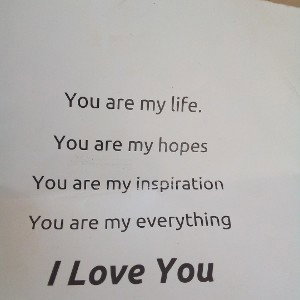 You are my life.
You are my hopes
You are my inspiration
You are my everything
I Love You